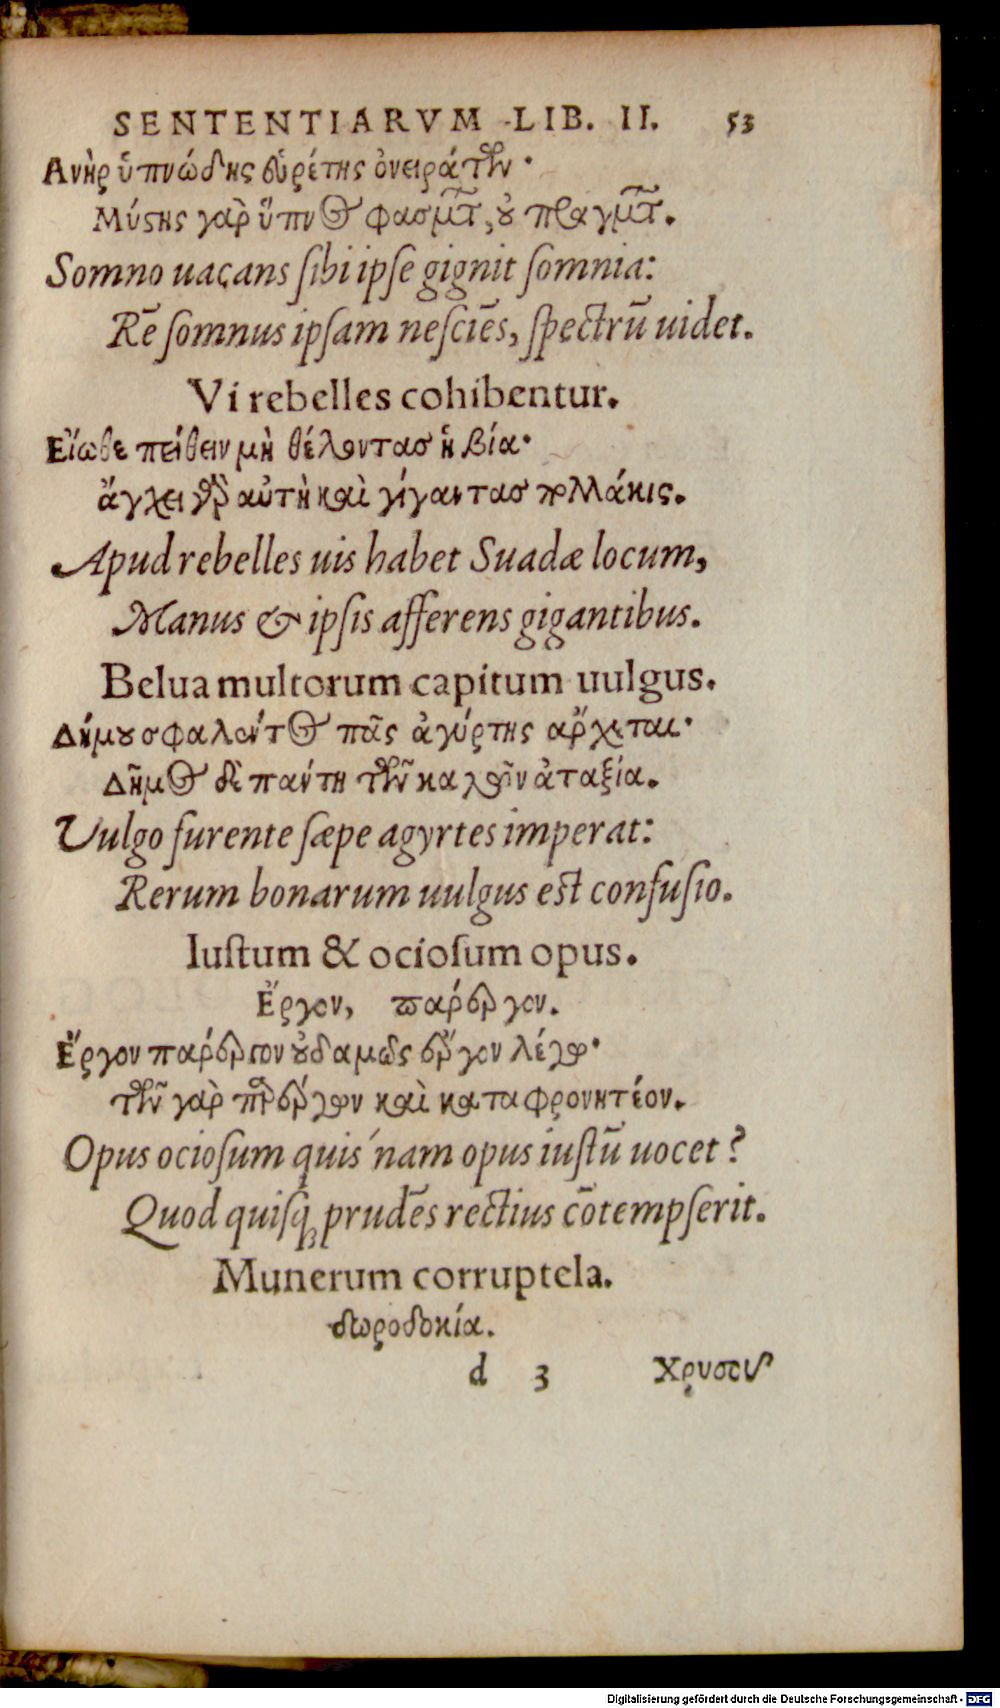 SENTENTIARVM LIB. II. 53
Ανὴρ ὑπνώδης εὑρέτης ὀνειράτων·
Μύστης γὰρ ὕπνος φασμάτων, οὐ πραγμάτων.
Somno uacans sibi ipse gignit somnia:
Rē somnus ipsam nesciēs, spectrū uidet.
Vi rebelles cohibentur.
Εἴωθε πείθειν μὴ θέλοντας ἡ βία·
ἄγχει γὰρ αὐτὴ καὶ γίγαντας πολλάκις.
Apud rebelles uis habet Suadæ locum,
Manus & ipsis afferens gigantibus.
Belua multorum capitum uulgus.
Δήμου σφαλούντος πᾶς ἀγύρτης ἄρχεται·
Δῆμος δὲ παύτη τῶν καλῶν ἀταξία.
Vulgo furente sæpe agyrtes imperat:
Rerum bonarum uulgus est confusio.
Iustum & ociosum opus.
Ἔργον, πάρεργον.
Ἔργον πάρεργον οὐδαμῶς ἔργον λέγω·
τῶν γὰρ παρέργων καὶ καταφρονητέον.
Opus ociosum quis'nam opus iustū uocet?
Quod quisq; prudēs rectius cōtempserit.
Munerum corruptela.
δωροδοκία.
d 3 Χρυσοῦ